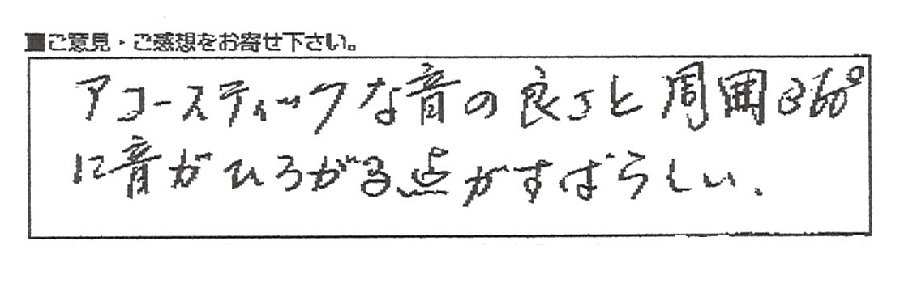 ■ご意見・ご感想をお寄せ下さい。
アコースティックな音の良さと周囲360°
に音がひろがる点がすばらしい。